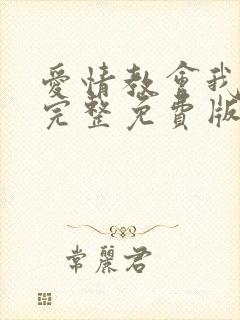 愛情教會我
完整免費版
常麗君